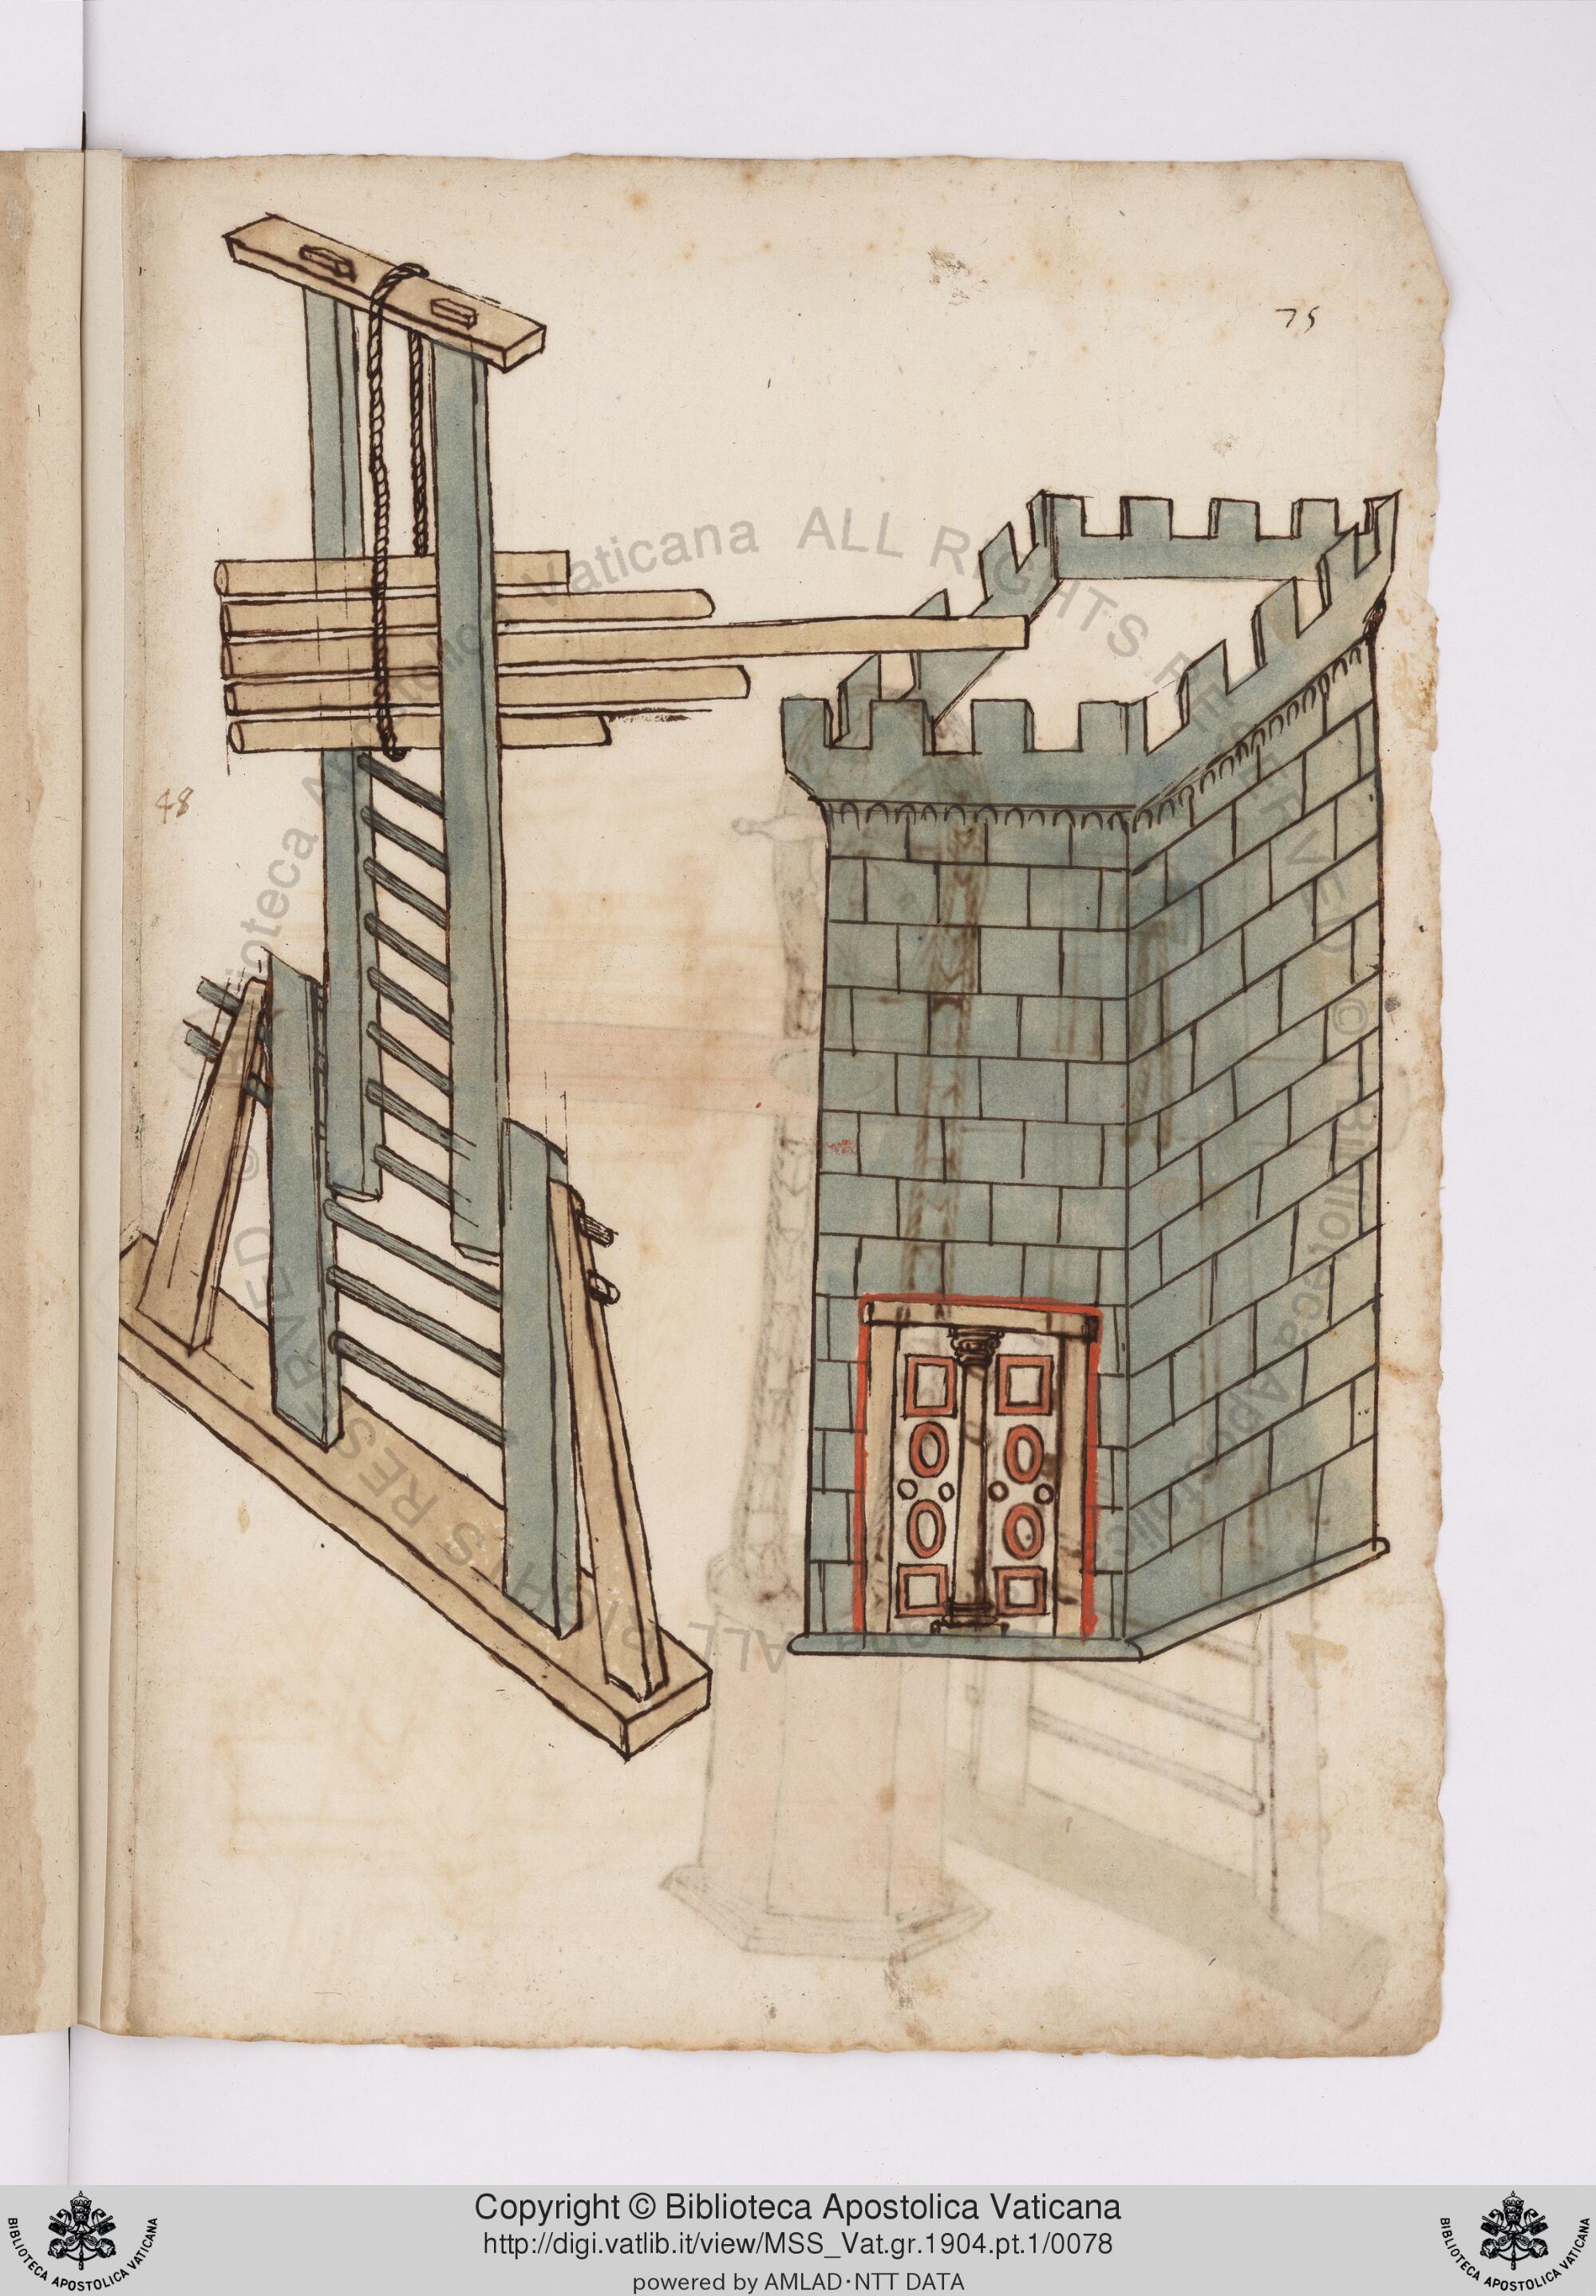 75
48
Biblioteca Apostolica Vaticana ALL RIGHTS RESERVED © Biblioteca Apostolica Vaticana ALL RIGHTS RESERVED ©
Copyright © Biblioteca Apostolica Vaticana
http://digi.vatlib.it/view/MSS_Vat.gr.1904.pt.1/0078
powered by AMLAD·NTT DATA
BIBLIOTECA APOSTOLICA VATICANA
BIBLIOTECA APOSTOLICA VATICANA